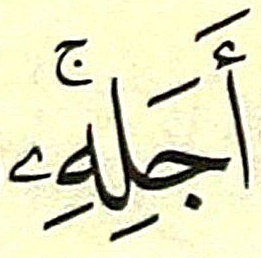 أَجَلِهِۦۚ